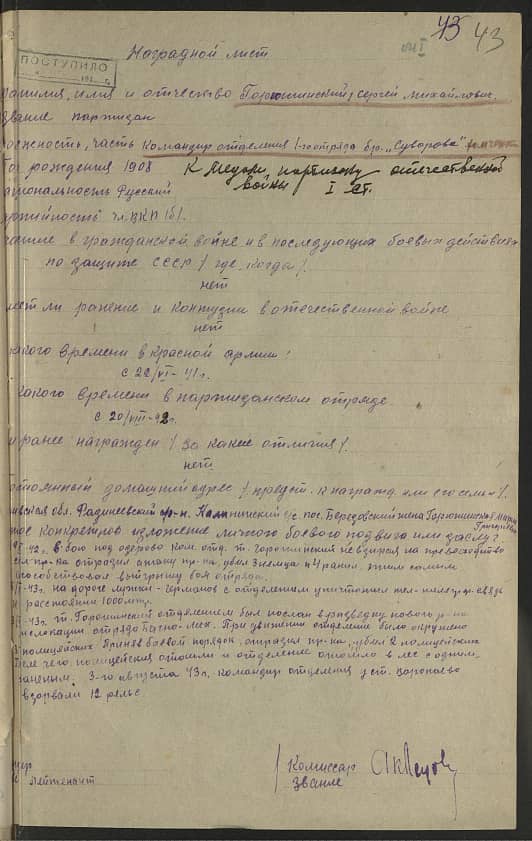 43 43
ПОСТУПИЛО
Наградной лист
амилия, имя и отчество Горюшинский, Сергей Михайлович.
звание партизан
олжность, часть Командир отделения 1-го отряда бр. „Суворова"
рождения 1908 К медали партизану отечественной
войны I ст.
ациональность Русский
артийность чл. ВКП(б).
астие в гражданской войне и в последующих боевых действиях
по защите СССР / где, когда /.
нет
меет ли ранение и контузии в отечественной войне
нет
какого времени в Красной армии
с 22/VI-41г.
какого времени в партизанском отряде
с 20/VIII-42г.
м ранее награжден / за какие отличия /.
нет
остоянный домашний адрес / предст. к награжд. или его семьи /.
обл. р-н с/с пос. Березовский жена Мария
Григорьевна
ное конкретное изложение личного боевого подвига или заслуг:
42г. В бою под ком. отд. т. невзирая на превосходство
сил пр-ка отразил атаку пр-ка, убил 3 немца и 4 ранил, этим самым
способствовал выигрышу боя отряда.
43г. на дороге с отделением уничтожил связь
расстоянии 1000 мтр.
43г. т. отделением был послан в разведку нового р-на
дислокации отряда При движении отделение было окружено
полицейских. Приняв боевой порядок, отразил пр-ка, убил 2 полицейских
после чего полицейские отошли и отделение отошло в лес с одним
раненым. 3-го августа 43г. командир отделения у ст.
взорвали 12 рельс.
Комиссар
лейтенант звание